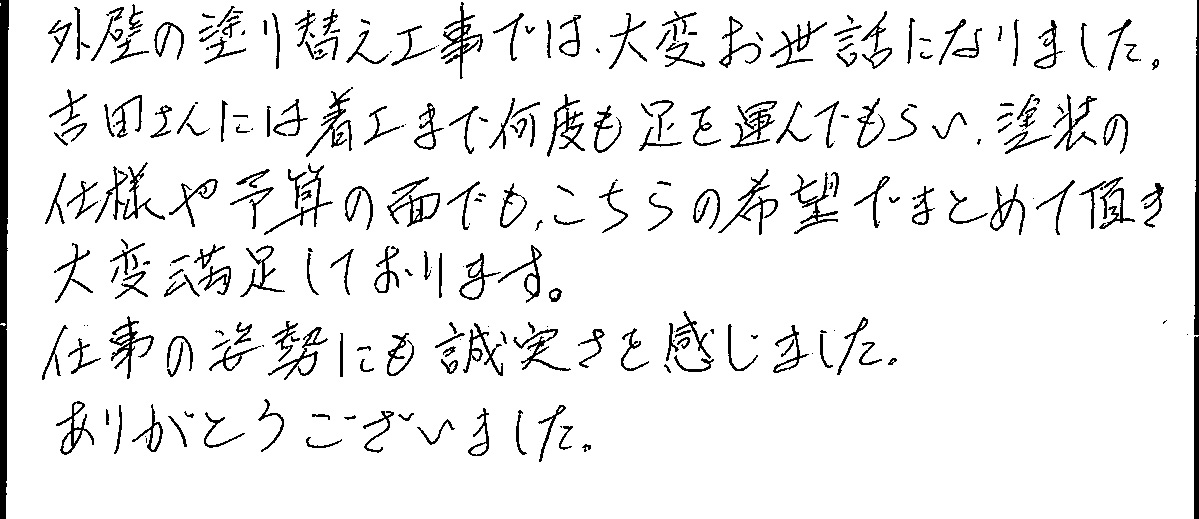 外壁の塗り替え工事では、大変お世話になりました。
吉田さんには着工まで何度も足を運んでもらい、塗装の
仕様や予算の面でも、こちらの希望でまとめて頂き
大変満足しております。
仕事の姿勢にも誠実さを感じました。
ありがとうございました。